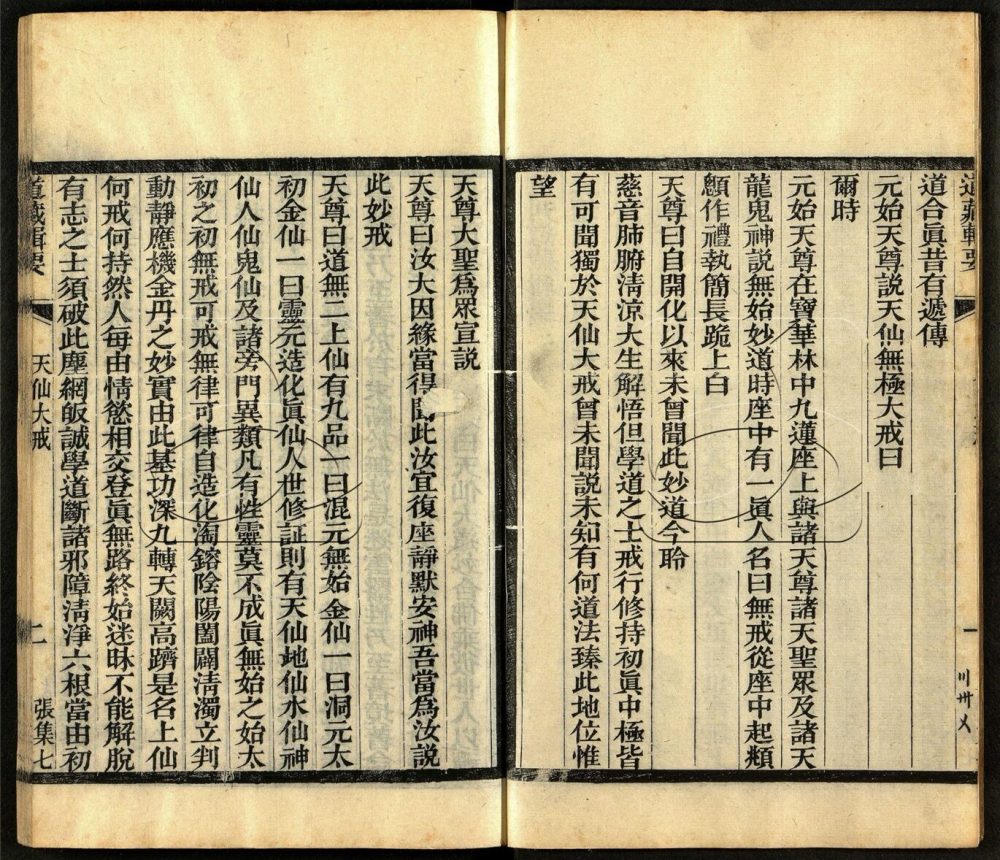 道藏輯要
一
道合眞昔有遞傳
元始天尊說天仙無極大戒曰
爾時
元始天尊在寶華林中九蓮座上與諸天尊諸天聖眾及諸天
龍鬼神說無始妙道時座中有一眞人名曰無戒從座中起頫
顖作禮執簡長跪上白
天尊曰自開化以來未曾聞此妙道今聆
慈音肺腑淸涼大生解悟但學道之士戒行修持初眞中極皆
有可聞獨於天仙大戒曾未聞說未知有何道法臻此地位惟
望
天尊大聖爲眾宣說
天尊曰汝大因緣當得聞此汝宜復座靜默安神吾當爲汝説
此妙戒
天尊曰道無二上仙有九品一曰混元無始金仙一曰洞元太
初金仙一曰靈元造化眞仙人世修証則有天仙地仙水仙神
仙人仙鬼仙及諸旁門異類凡有性靈莫不成眞無始之始太
初之初無戒可戒無律可律自造化淘鎔陰陽闔闢淸濁立判
動靜應機金丹之妙實由此基功深九轉天闕高躋是名上仙
何戒何持然人每由情慾相交登眞無路終始迷昧不能解脫
有志之士須破此塵網皈誠學道斷諸邪障淸淨六根當由初
道藏輯要
天仙大戒
二
張集七